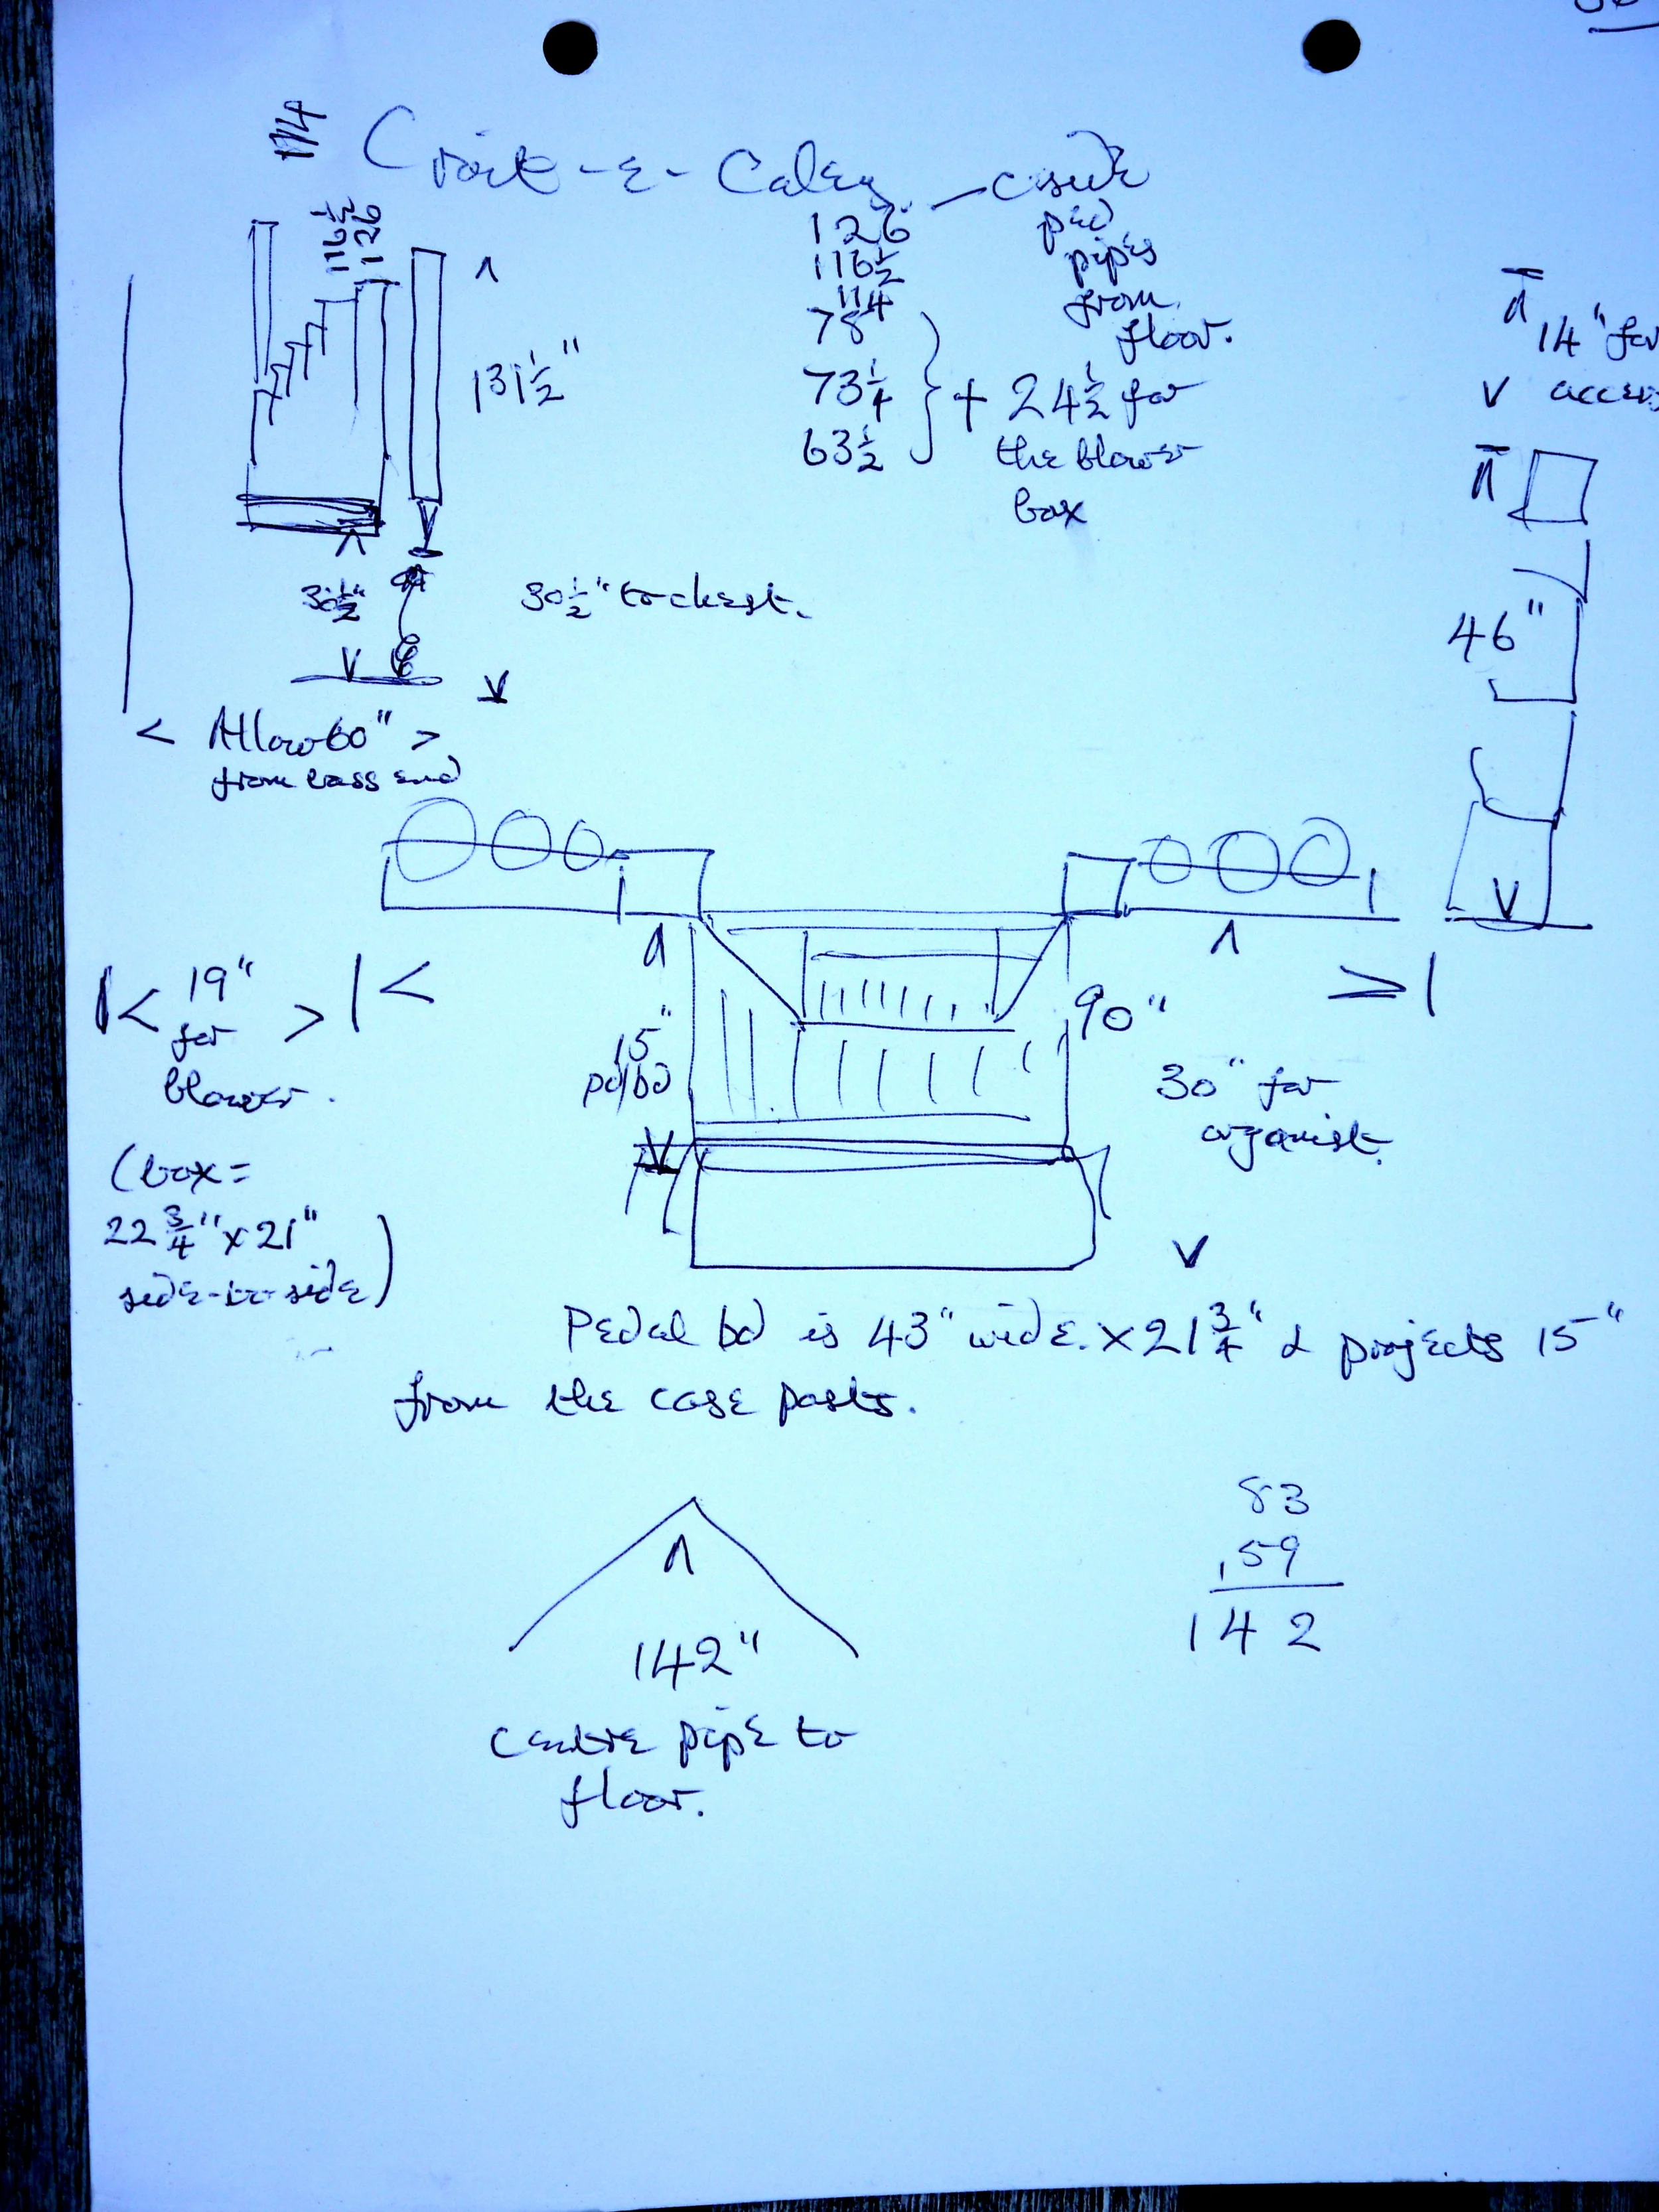 114
Croit-e-Caley
116½
126
126
116½
114
78
73¼
63½
ped
pipes
from
floor.
+ 24½ for
the blower
box
131½"
30½"
30½" to chest.
< Allow 60" >
from bass end
14" for
access
46"
19"
for
blower.
(box =
22¾" x 21"
side-to-side)
15"
pd/bd
90"
30" for
organist.
Pedal bd is 43" wide. x 21¾" & projects 15"
from the case posts.
142"
centre pipe to
floor.
83
59
142